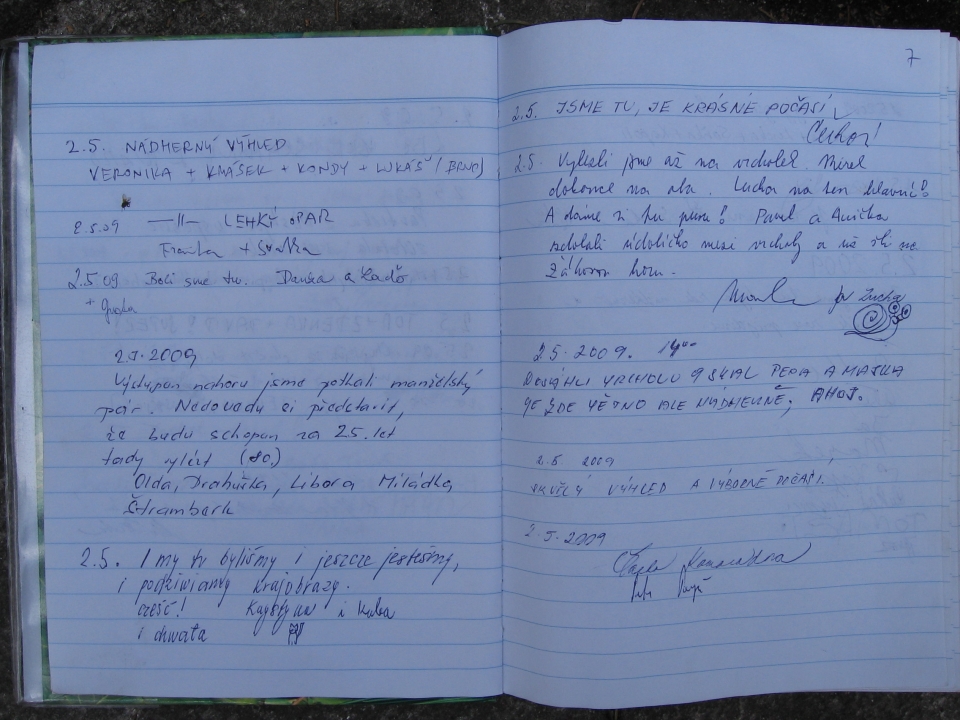 2.5. NÁDHERNÝ VÝHLED
VERONIKA + KMÁSEK + KONDY + LUKÁŠ (BRNO)
2.5.09 —||— LEHKÝ OPAR
+
2.5.09 Boli sme tu. Danka a
+
2.5.2009
Výstupom nahoru jsme potkali manželský
pár. Nedovedu si představit,
že budu schopan za 25 let
tady vylézt (80.)
Olda, Drahuška, Libora Miládka
Štramberk
2.5. I my tu byliśmy i jeszcze jesteśmy,
i podziwiamy krajobrazy.
cześć! Krystyna i Kuba
i chwała
7
2.5. JSME TU, JE KRÁSNÉ POČASÍ
2.5. Vylezli jsme až na vrcholek.
dokonce na oba. Lucka na ten hlavní!
A dáme si hu puru! Pavel a Anička
zdolali údolíčko mezi vrcholy a už šli na
horu.
Lucka
2.5.2009. 14⁰⁰
DOSÁHLI VRCHOLU 9 SKAL PEPA A MAJKA
JE ZDE VĚTNO ALE NÁDHERNĚ, AHOJ.
2.5 2009
SKVĚLÝ VÝHLED A VÝBORNÉ POČASÍ.
2.5.2009